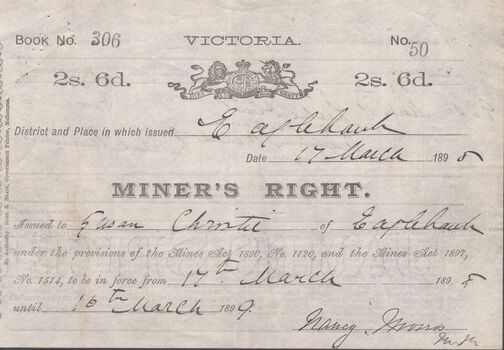 Book No. 306 VICTORIA. No. 50
2s. 6d. 2s. 6d.
District and Place in which issued Eaglehawk
Date 17 March 1898
MINER'S RIGHT.
Issued to Susan Christie of Eaglehawk
under the provisions of the Mines Act 1890, No. 1120, and the Mines Act 1897,
No. 1514, to be in force from 17th March 1898
until 16th March 1899.
Nancy Morris